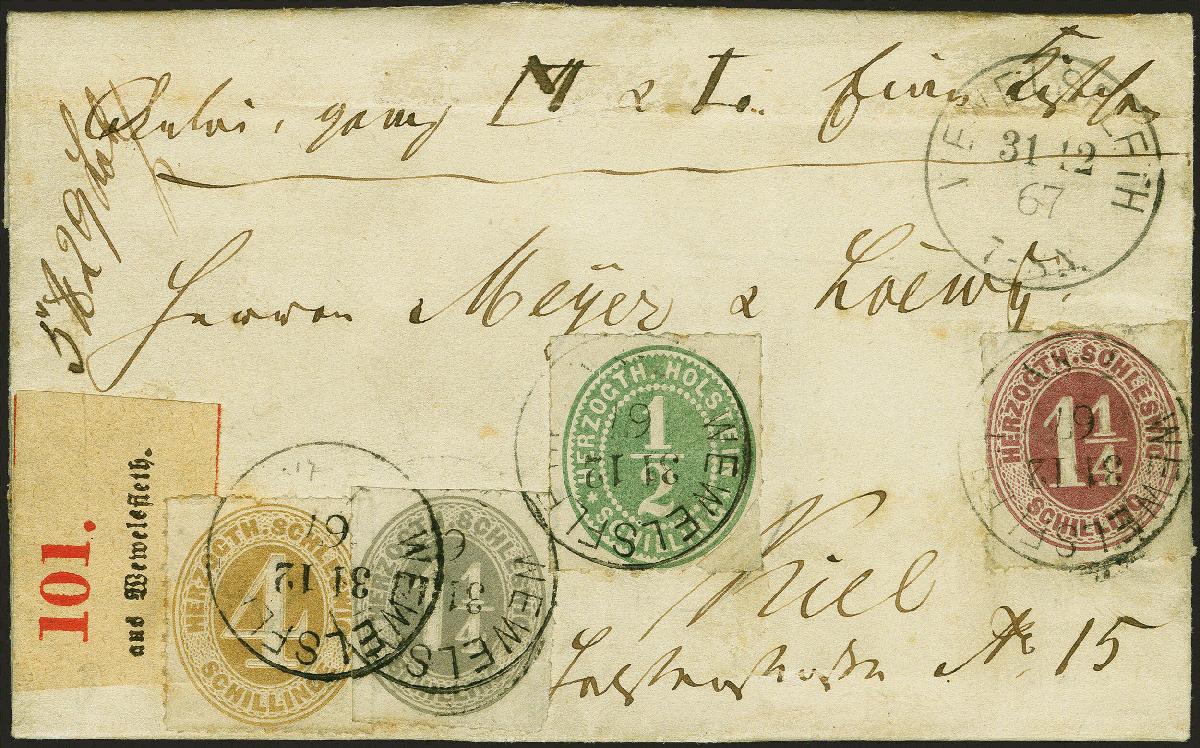 Anbei, gez. M & L. Eine Kiste
WEWELSFLETH
31 12
67
7-8 N.
5 ℔ 29 Loth
Herren Meÿer & Loewÿ.
101.
aus Wewelsfleth.
HERZOGTH. HOLSTEIN
1/2
SCHILLING
WEWELSFLETH
31 12
67
HERZOGTH. SCHLESWIG
1 1/4
SCHILLING
WEWELSFLETH
31 12
67
HERZOGTH. SCHLESWIG
4
SCHILLING
WEWELSFLETH
31 12
67
HERZOGTH. SCHLESWIG
1 1/4
SCHILLING
WEWELSFLETH
31 12
67
Kiel
No 15